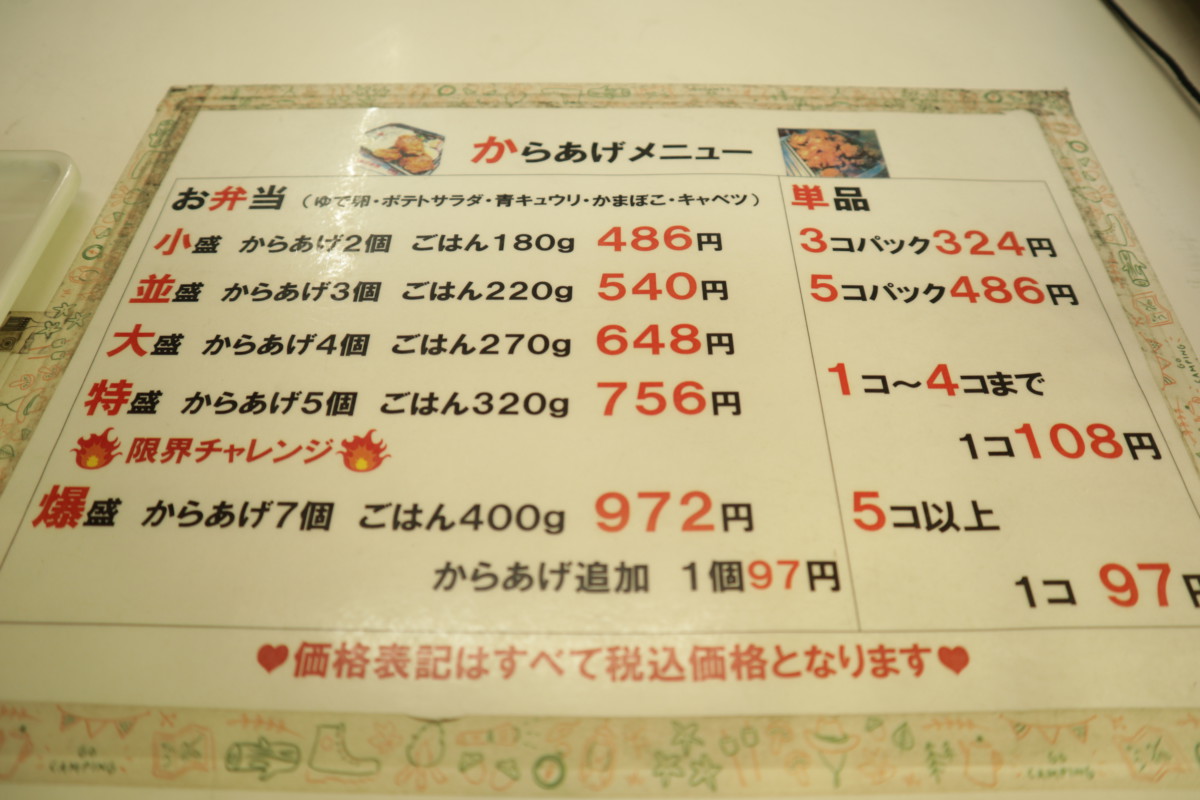 からあげメニュー
お弁当 (ゆで卵・ポテトサラダ・青キュウリ・かまぼこ・キャベツ)
小盛 からあげ2個 ごはん180g 486円
並盛 からあげ3個 ごはん220g 540円
大盛 からあげ4個 ごはん270g 648円
特盛 からあげ5個 ごはん320g 756円
限界チャレンジ
爆盛 からあげ7個 ごはん400g 972円
からあげ追加 1個97円
単品
3コパック324円
5コパック486円
1コ〜4コまで
1コ108円
5コ以上
1コ 97円
♥価格表記はすべて税込価格となります♥
GO CAMPING
GO CAMPING